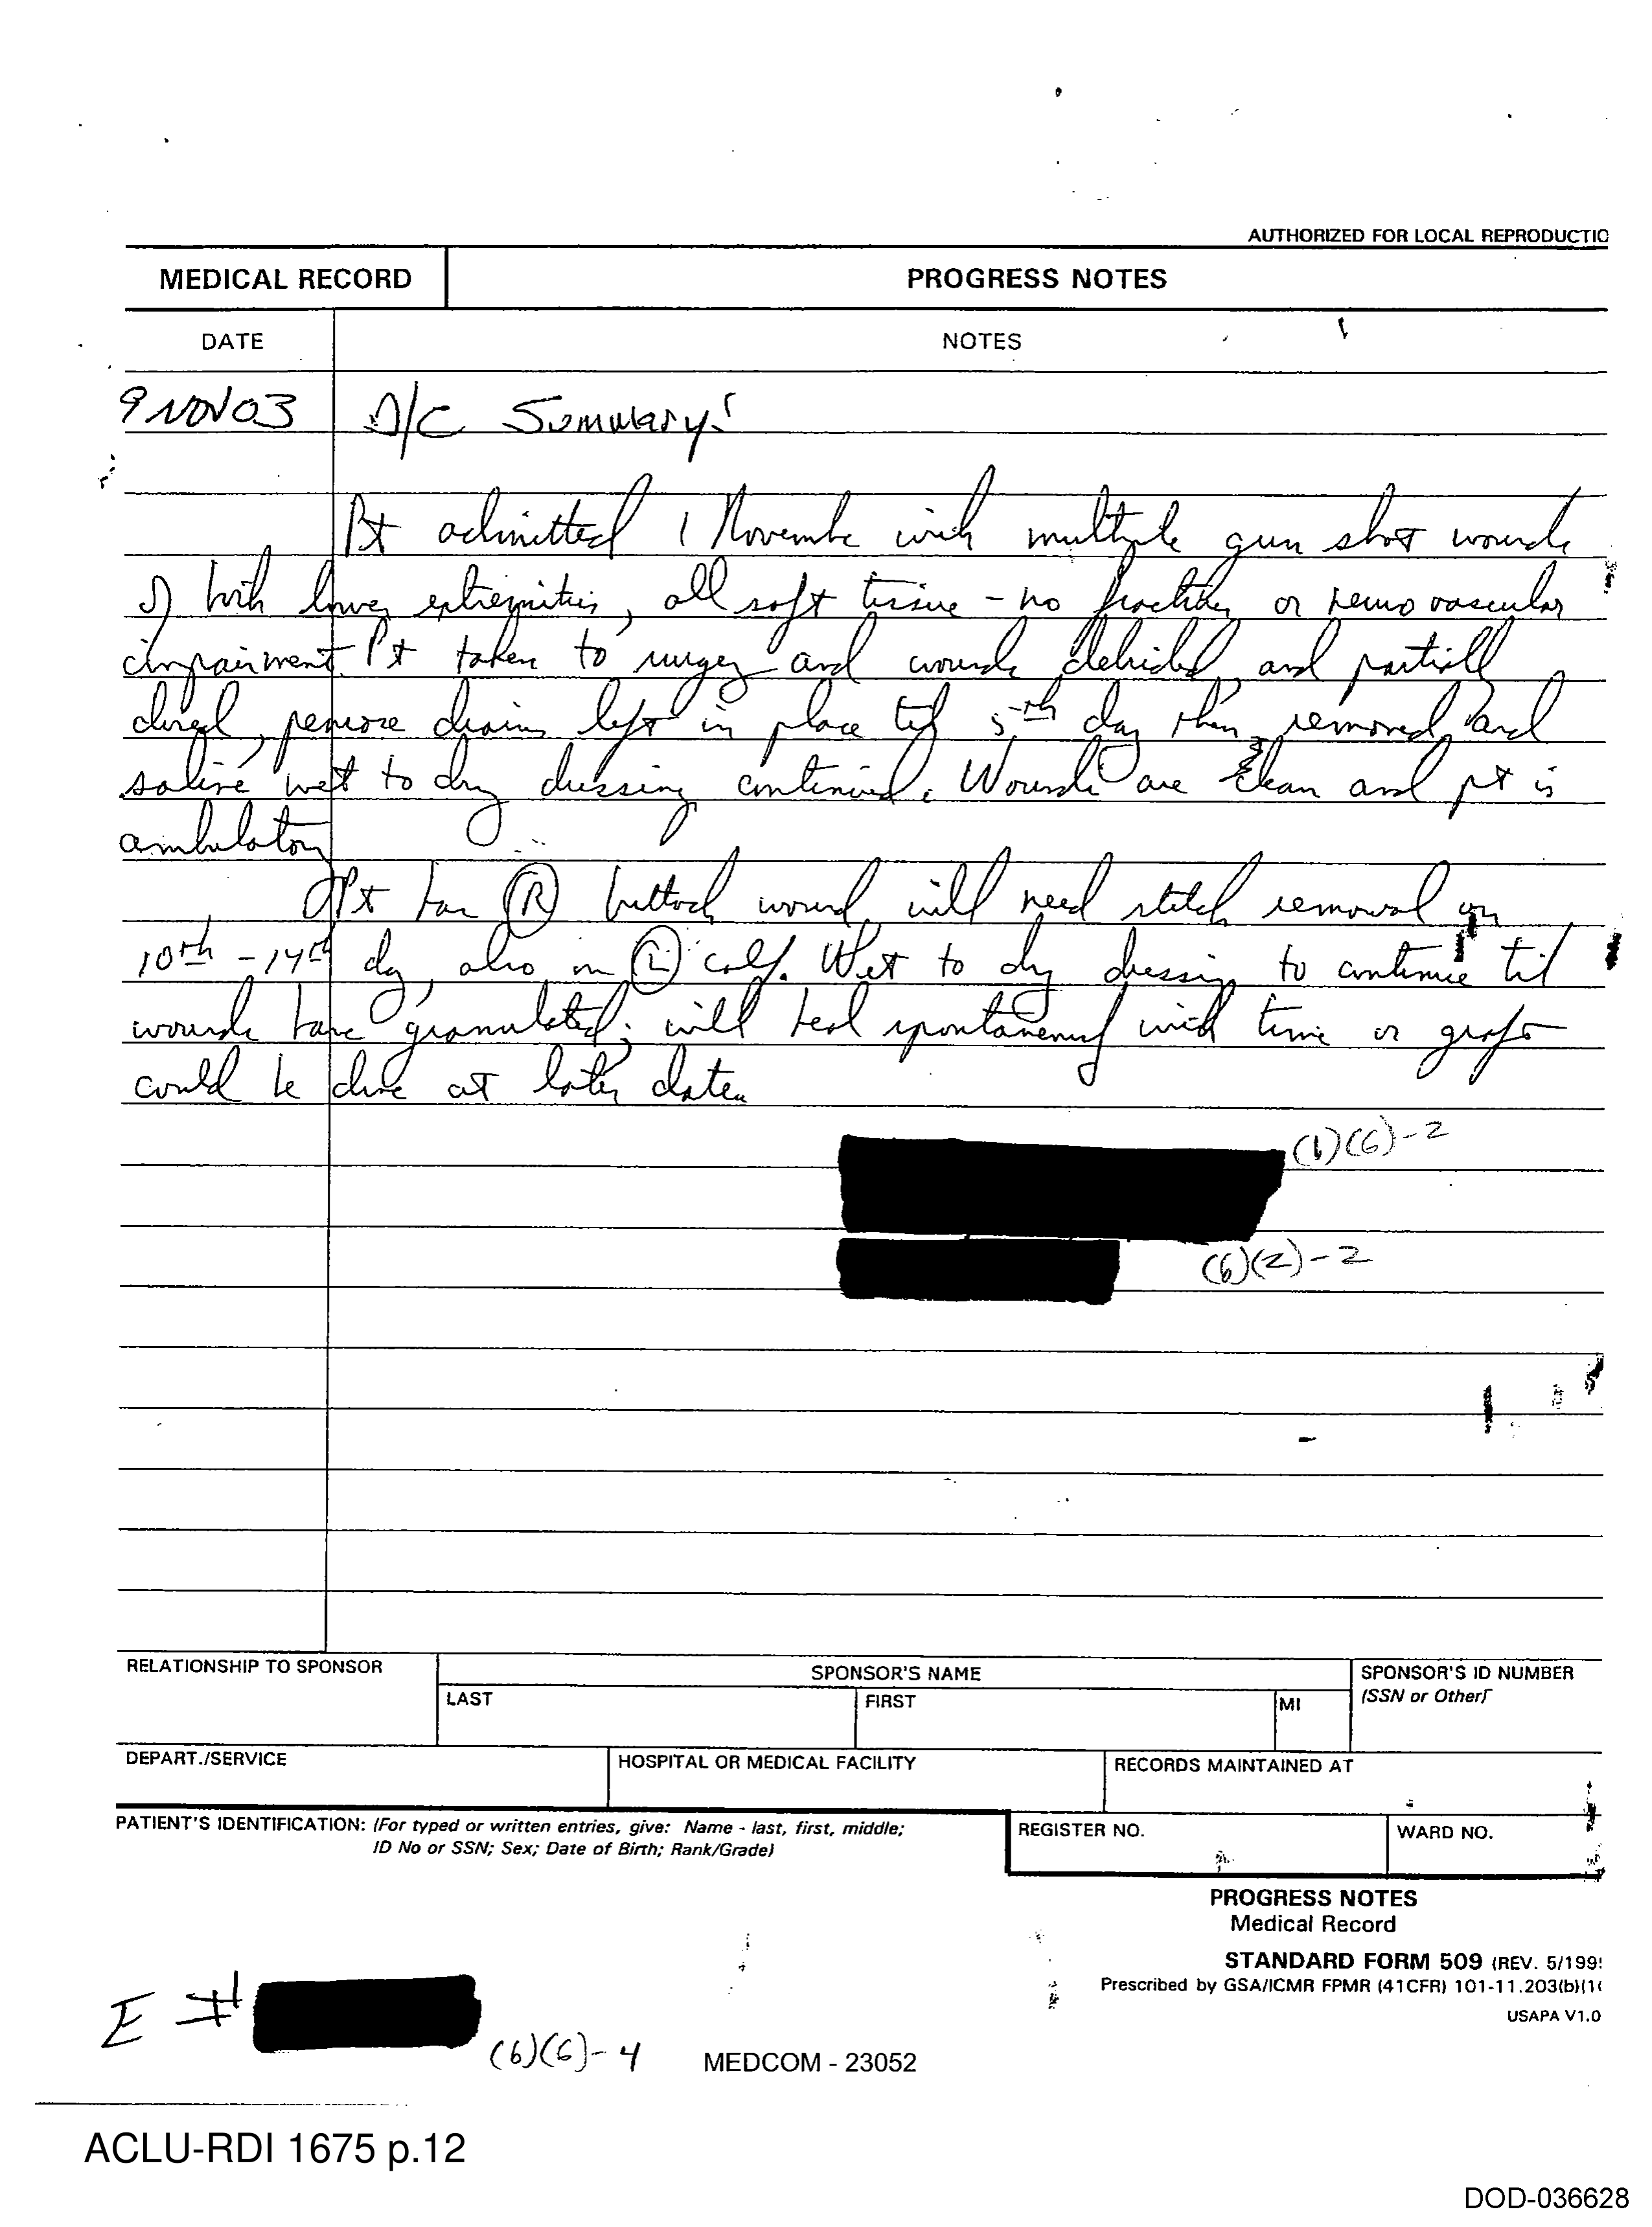 AUTHORIZED FOR LOCAL REPRODUCTIO
MEDICAL RECORD PROGRESS NOTES
DATE NOTES
9 NOV 03 D/C Summary:
Pt admitted 1 November with multiple gun shot wounds
of both lower extremities, all soft tissue - no fractures or neurovascular
impairment. Pt taken to surgery and wounds debrided, and partially
closed, penrose drains left in place til 5th day then removed, and
saline wet to dry dressing continued. Wounds are clean and pt is
ambulatory
Pt has (R) buttock wound, will need stitch removal on
10th - 14th day, also on (L) calf. Wet to dry dressing to continue til
wounds have granulated; will heal spontaneously with time or graft
could be done at later date.
(b)(6)-2
(6)(2)-2
RELATIONSHIP TO SPONSOR SPONSOR'S NAME SPONSOR'S ID NUMBER
LAST FIRST MI (SSN or Other)
DEPART./SERVICE HOSPITAL OR MEDICAL FACILITY RECORDS MAINTAINED AT
PATIENT'S IDENTIFICATION: (For typed or written entries, give: Name - last, first, middle; REGISTER NO. WARD NO.
ID No or SSN; Sex; Date of Birth; Rank/Grade)
PROGRESS NOTES
Medical Record
STANDARD FORM 509 (REV. 5/199
Prescribed by GSA/ICMR FPMR (41CFR) 101-11.203(b)(1
USAPA V1.0
E #
(b)(6)-4 MEDCOM - 23052
ACLU-RDI 1675 p.12
DOD-036628